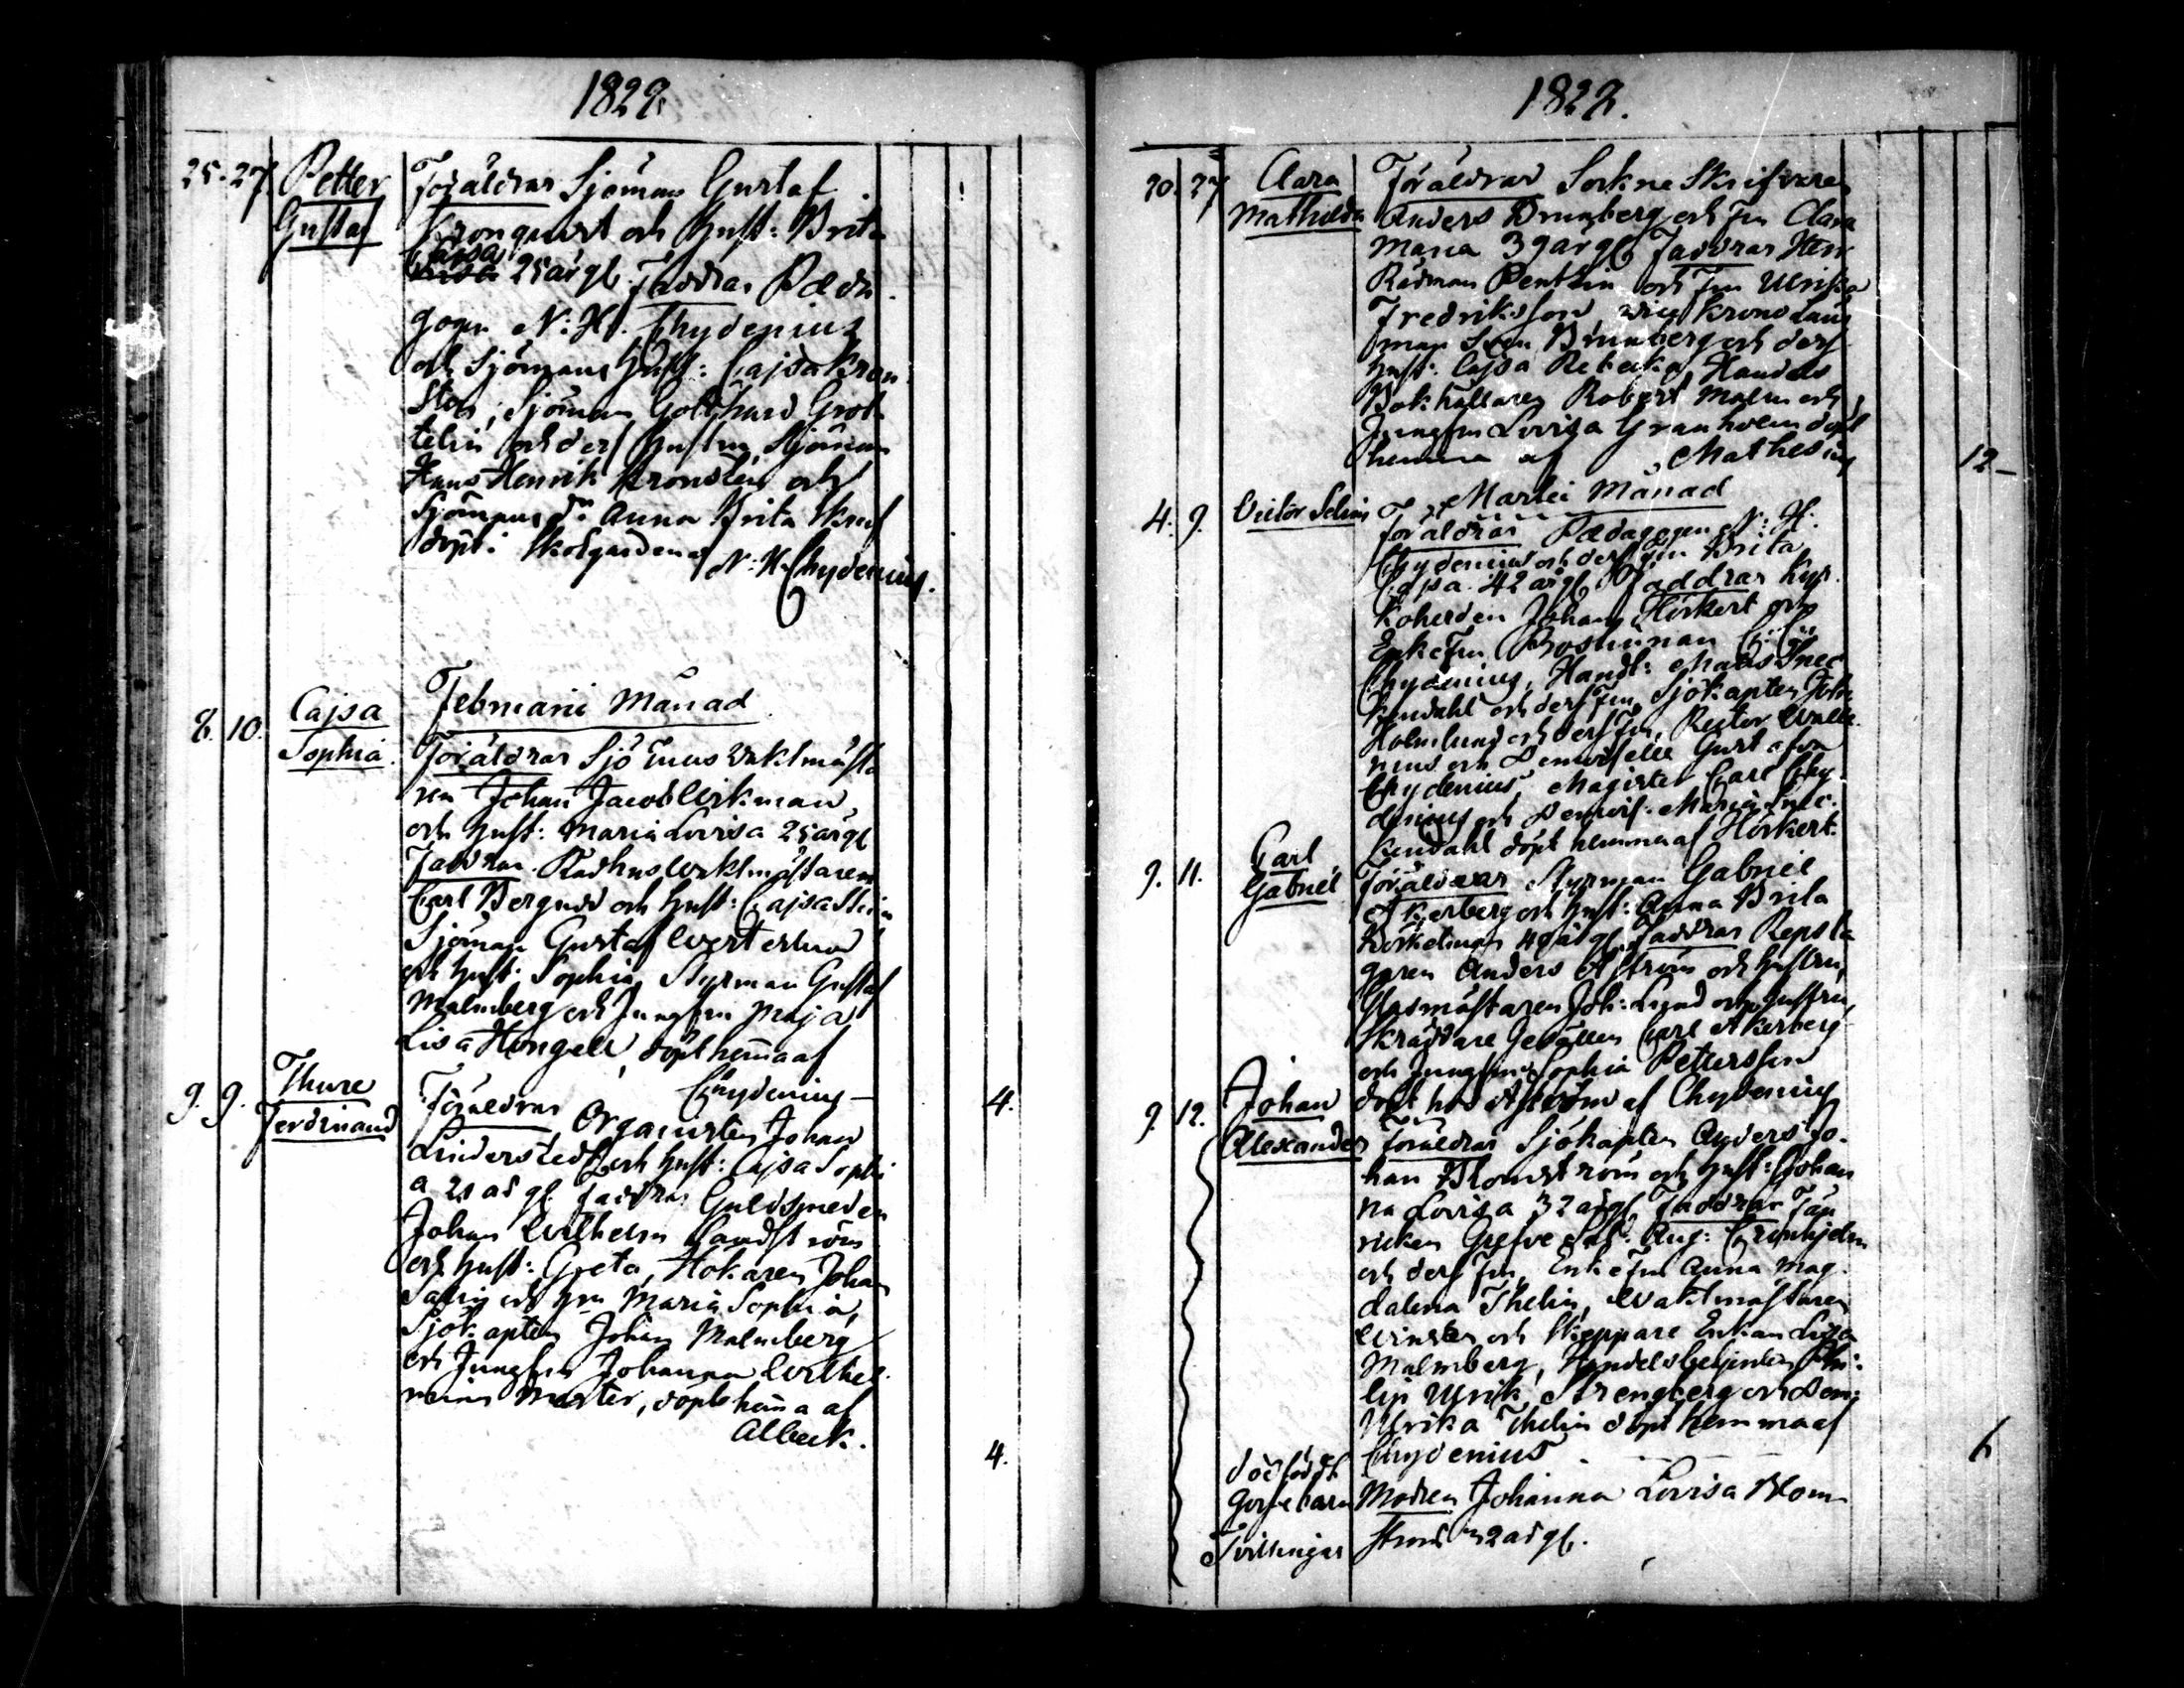 1829.
25. 27. Petter Föräldrar Sjöman Gustaf
Gustaf Kronqvist och Hust: Brita
Cajsa 25 år gl. Faddrar Pæda
gogen N: H. Chydenius
och Sjömans Hust: Cajsa Kron
Sten, Sjöman Gotthard Grot
telin och dess hustru, Sjöman
Hans Henrik Kronsten och
Sjömans Dr Anna Brita
döpt i Skolgården af
N: H. Chydenius.
Februarii Månad
8. 10. Cajsa
Sophia. Föräldrar Sjö Tulls Vaktmästa
ren Johan Jacob Wikman
och Hust: Maria Lovisa 25 år gl
Faddrar. Rådhus Waktmästaren
Carl Bergudd och Hust: Cajsa Stina
Sjöman Gustaf Westerlund
och Hust: Sophia, Styrman Gustaf
Malmberg och Jungfru Maja
Lisa Hongell, döpt hemma af
Chydenius — 4.
9. 9. Thure
Ferdinand Föräldrar Organisten Johan
Linderstedt och Hust: Cajsa Sophi
a 21 år gl. faddrar Guldsmeden
Johan Wilhelm Sandström
och Hust: Greta, Hökaren Johan
Salin och Hru Maria Sophia,
Sjökapten Johan Malmberg
och Jungfru Johanna Wilhel
mina Merter, döpt hemma af
Alleck. 4.
1829.
20. 27 Clara Föräldrar Sockne Skrifvaren
Mathilda Anders Brunberg och Fru Clara
Maria 39 år gl. Faddrar Herr
Rådman Pentzin och Fru Ulrika
Fredriksson, Krono Läns
man Sven Brunberg och dess
Hust: Cajsa Rebecka, Handels
Bokhållaren Robert Malm och
Jungfru Lovisa Granholm döpt
hemma af Mathesius 12 —
Martii Månad
4. 9. Victor Selim Föräldrar Pædagogen N: H.
Chydenius och dess Fru Brita
Cajsa 42 år gl. Faddrar Kyr
koherden Johan Hörkert och
Enkefru Borgman
Chydenius, Handl: Matts Snec
kendahl och dess Fru, Sjökapten Joh:
Holmlund och dess Fru, Rector Walle
nius och Demoiselle Gustafva
Chydenius, Magister Carl Chy
denius och Demois: Maria Snec
kendahl döpt hemma af Hörkert.
9. 11. Carl
Gabriel Föräldrar Styrman Gabriel
Åkerberg och Hust: Anna Brita
40 år gl. Faddrar Repsla
garen Anders Åström och hustru,
Glasmästaren Joh: Lund och hustru,
Skräddare Gesällen Carl Åkerberg
och Jungfru Sophia Pettersson
döpt hos Åström af Chydenius
9. 12. Johan
Alexander Föräldrar Sjökapten Anders Jo
han Blomström och Hust: Johan
na Lovisa 32 år gl. Faddrar Fän
riken Grefve Ad: Aug: Cronhjelm
och dess Fru, Enkefru Anna Mag
dalena Thelin, Waktmästaren
Winsten och Skeppare Enkan Lisa
Malmberg, Handelsbetjenten Phi
lip Ulrik Strengberg och Dem:
Ulrika Thelin döpt hemma af
Chydenius 6
dödfödt
Gossebarn Modren Johanna Lovisa Blom
Tvillingar ström 32 år gl.